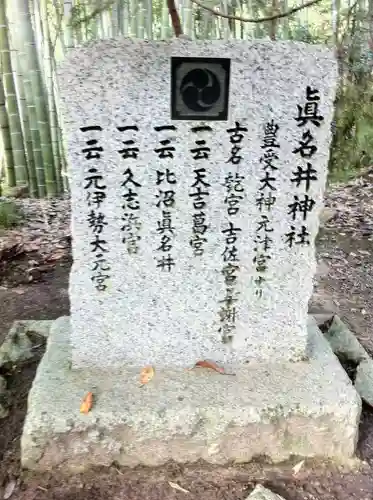 眞名井神社
豊受大神元津宮ナリ
古名 匏宮 吉佐宮 与謝宮
一云 天吉葛宮
一云 比沼眞名井
一云 久志濱宮
一云 元伊勢大元宮